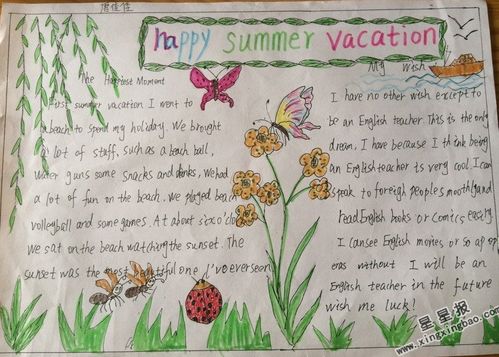 唐佳佳
happy summer vacation
The Happiest Moment
First summer vacation I went to
a beach to spend my holiday. We brought
a lot of staff, such as a beach ball,
water guns some snacks and drinks, We had
a lot of fun on the beach. We played beach
volleyball and some games. At about six o'clo
we sat on the beach watching the sunset. The
sunset was the most beautiful one I've ever seen
My wish
I have no other wish except to
be an English teacher This is the only
dream, I have because I think being
an English teacher is very cool I can
speak to foreigh people smoothly and
read English books or comics easily
I can see English movies or so ap op
eras without I will be an
English teacher in the future
wish me luck!
星星报
www.xingxingbao.com